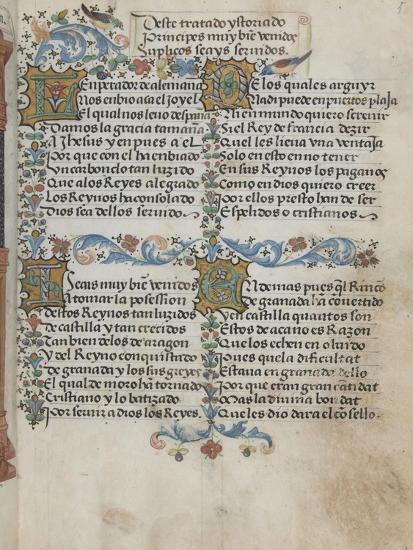 Deste tratado ystoriado
Principes muy biē venidos
Suplicos seays seruidos.
El enperador de alemana
Nos enbio aca el joyel
El qual nos leuo despana
Damos la gracia tamaña
A Jhesus y en pues a el
Por que con el ha enbiado
Un carbonclo tan luzido
Que a los Reyes a legrado
Los Reynos ha consolado
Dios sea dellos seruido.
De los quales arguyr
Nadi puede en puertos plaja
Ni en mundo quiero sereuir
Si el Rey de francia dezir
Quel les lieua vna ventaja
Solo en esto no tener
En sus Reynos los paganos
Como en dios quiero creer
Por ellos presto han de ser
Espelidos o cristianos.
Seas muy biē venidos
A tomar la posession
Destos Reynos tan luzidos
de castilla y tan creçidos
Tan bien delos de aragon
Y del Reyno conquistado
de granada y los sus greyes
El qual de moro hā tornado
Cristiano y lo batizado
Por seruir a dios los Reyes.
Endemas pues ql Rincō
de granada hā cōuertido
Y en castilla quantos son
Estos de aca no es Razon
Que los echen en oluido
Pues que la dificultat
Estaua en granada dello
Por que eran gran cantidat
Mas la diuina bondat
Que les dio dara el cōsello.